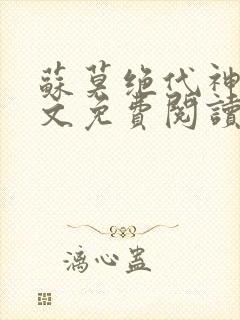 蘇莫绝代神
文免費閱讀
漓心蛊